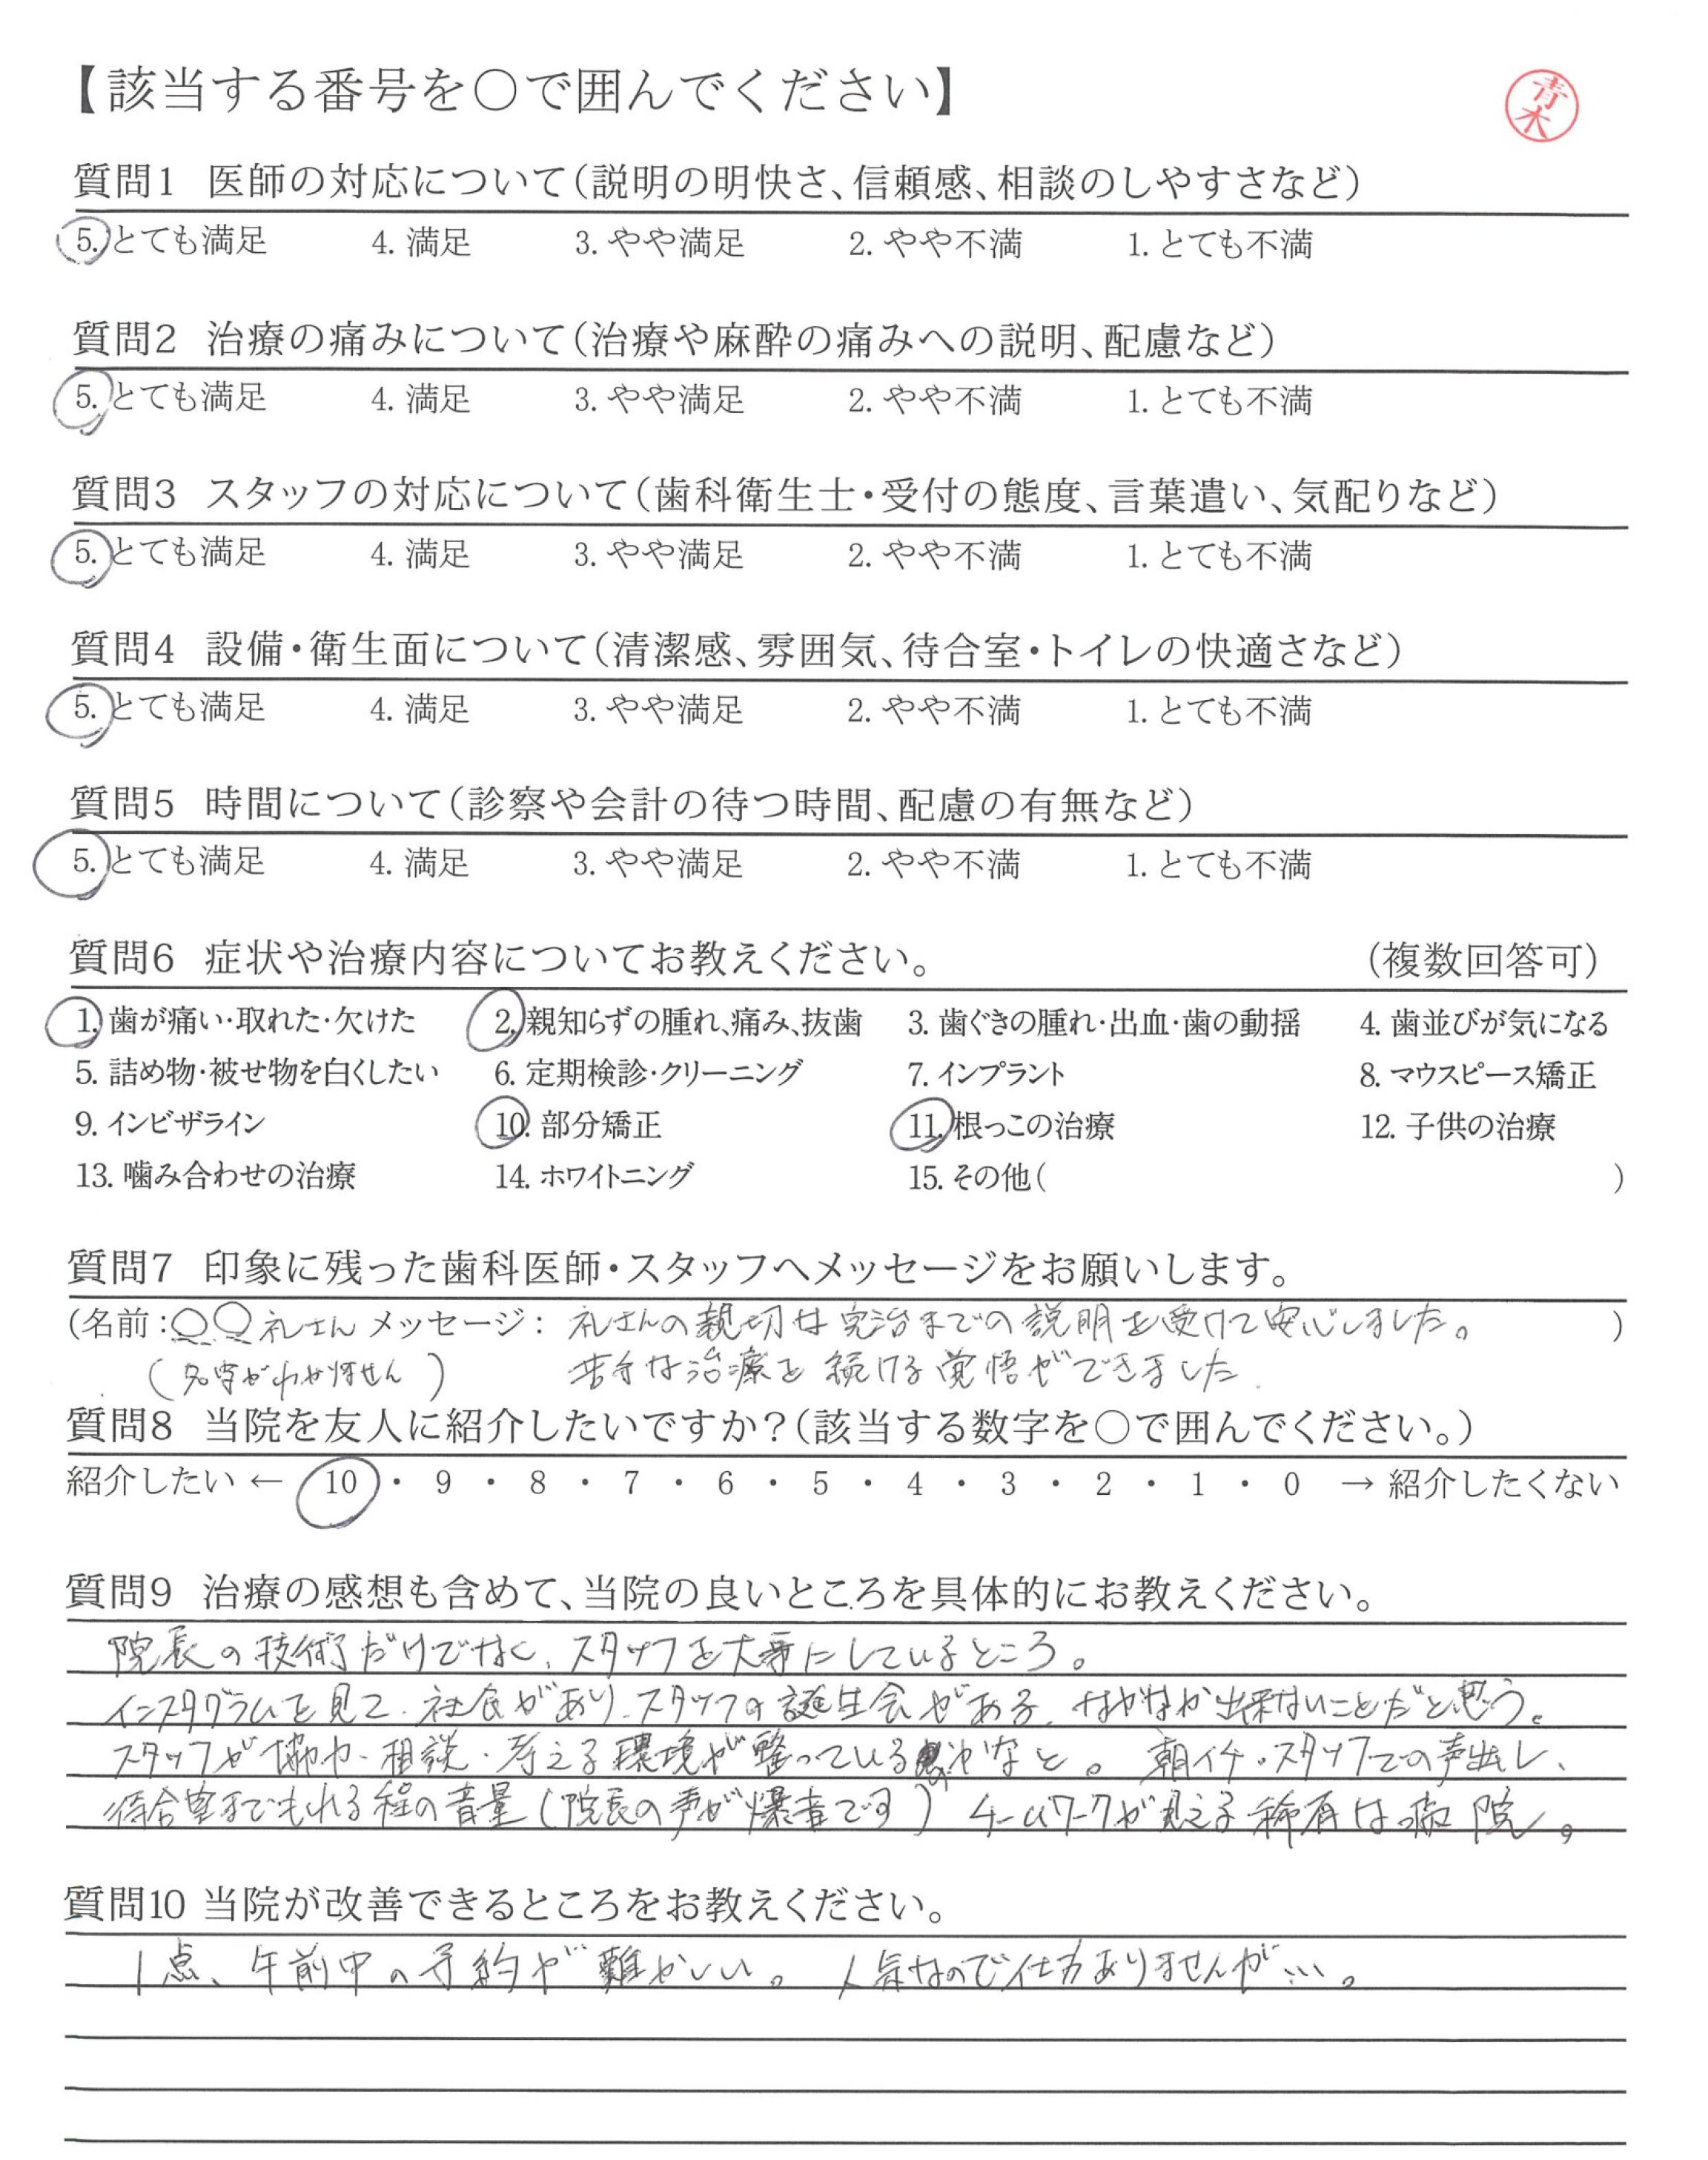 【該当する番号を〇で囲んでください】
青木
質問1 医師の対応について(説明の明快さ、信頼感、相談のしやすさなど)
5. とても満足 4. 満足 3. やや満足 2. やや不満 1. とても不満
質問2 治療の痛みについて(治療や麻酔の痛みへの説明、配慮など)
5. とても満足 4. 満足 3. やや満足 2. やや不満 1. とても不満
質問3 スタッフの対応について(歯科衛生士・受付の態度、言葉遣い、気配りなど)
5. とても満足 4. 満足 3. やや満足 2. やや不満 1. とても不満
質問4 設備・衛生面について(清潔感、雰囲気、待合室・トイレの快適さなど)
5. とても満足 4. 満足 3. やや満足 2. やや不満 1. とても不満
質問5 時間について(診察や会計の待つ時間、配慮の有無など)
5. とても満足 4. 満足 3. やや満足 2. やや不満 1. とても不満
質問6 症状や治療内容についてお教えください。 (複数回答可)
1. 歯が痛い・取れた・欠けた 2. 親知らずの腫れ、痛み、抜歯 3. 歯ぐきの腫れ・出血・歯の動揺 4. 歯並びが気になる
5. 詰め物・被せ物を白くしたい 6. 定期検診・クリーニング 7. インプラント 8. マウスピース矯正
9. インビザライン 10. 部分矯正 11. 根っこの治療 12. 子供の治療
13. 噛み合わせの治療 14. ホワイトニング 15. その他( )
質問7 印象に残った歯科医師・スタッフへメッセージをお願いします。
(名前:〇〇礼さん メッセージ: 礼さんの親切な完治までの説明を受けて安心しました。 )
(名字がわかりません) 苦手な治療を続ける覚悟ができました.
質問8 当院を友人に紹介したいですか?(該当する数字を〇で囲んでください。)
紹介したい ← 10 ・ 9 ・ 8 ・ 7 ・ 6 ・ 5 ・ 4 ・ 3 ・ 2 ・ 1 ・ 0 → 紹介したくない
質問9 治療の感想も含めて、当院の良いところを具体的にお教えください。
院長の技術だけでなく、スタッフを大事にしているところ。
インスタグラムを見て、社食があり、スタッフの誕生会がある、なかなか出来ないことだと思う。
スタッフが協力・相談・考える環境が整っているかなと。 朝イチ・スタッフでの声出し、
待合室までもれる程の音量(院長の声が爆音です) チームワークが見える稀有な病院。
質問10 当院が改善できるところをお教えください。
1点、午前中の予約が難かしい。 人気なので仕方ありませんが…。